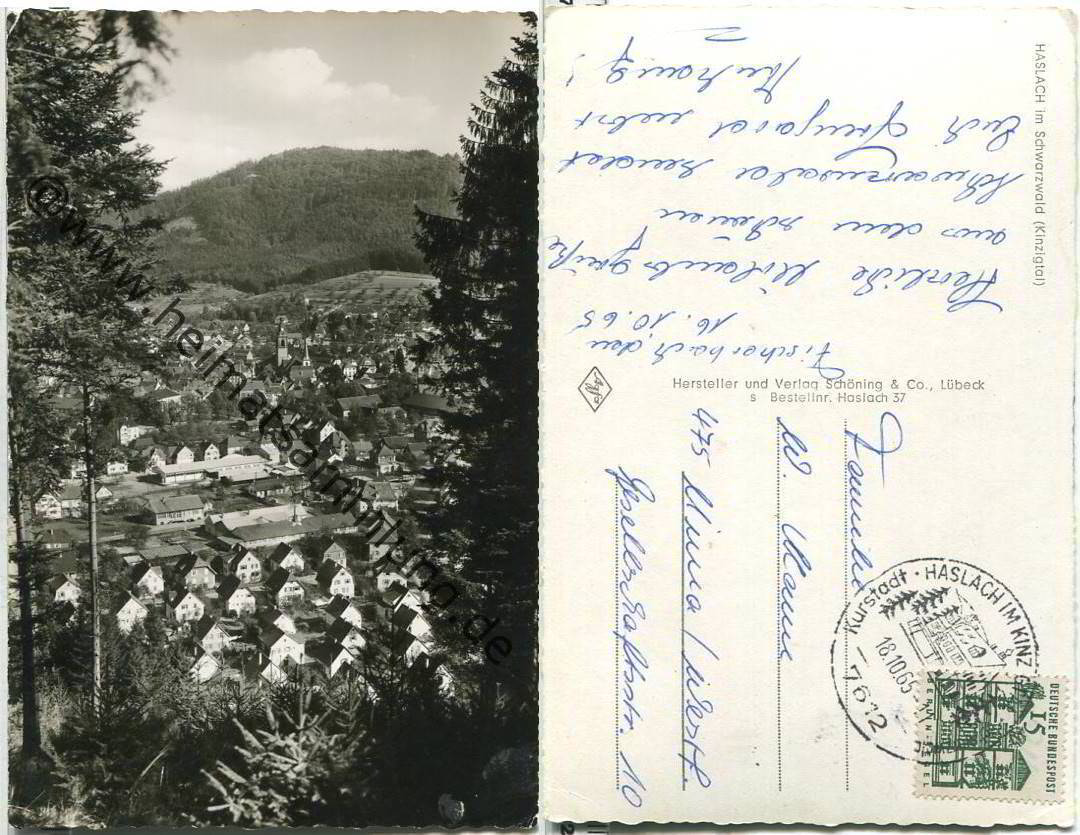 © www.heimatsammlung.de
HASLACH im Schwarzwald (Kinzigtal)
Fischerbach, den
16.10.65
Herzliche Urlaubsgrüße
aus dem schönen
Schwarzwald sendet
Euch Irmgard nebst
Anhang!
Hersteller und Verlag Schöning & Co., Lübeck
s Bestellnr. Haslach 37
Familie
W. Mann
475 Unna / Westf.
Gesellschaftsstr. 10
Kurstadt · HASLACH IM KINZ
18.10.65
7612
15
DEUTSCHE BUNDESPOST